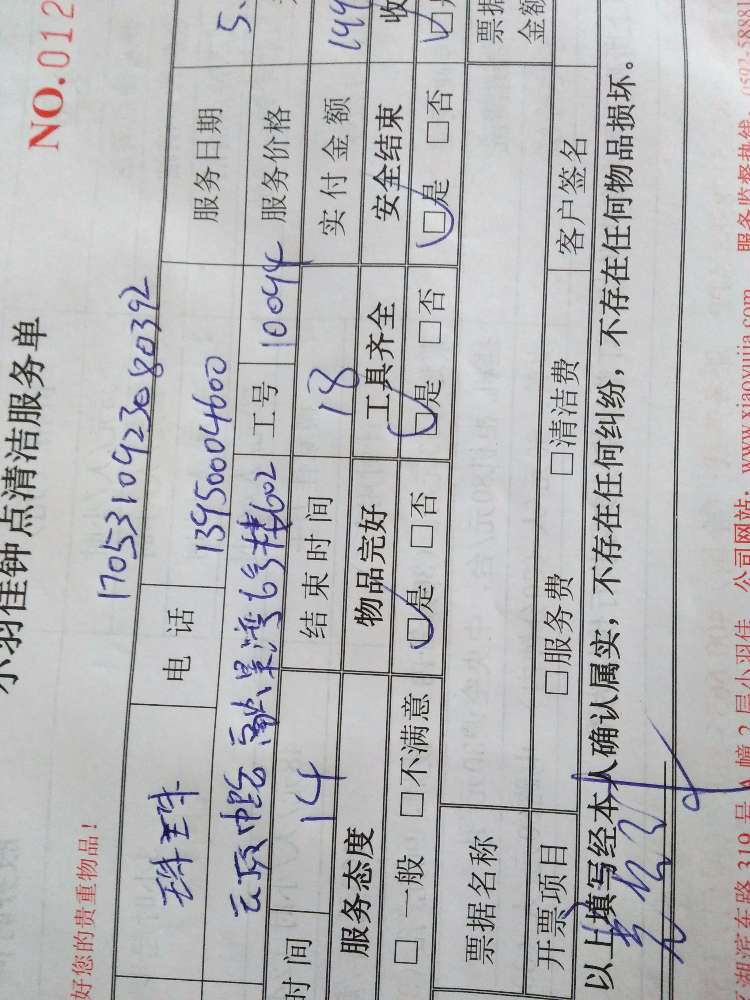 小羽佳钟点清洁服务单
NO.012
好您的贵重物品！
1705310923080392
电 话 13950004600 服务日期 5.
602 工号 10094 服务价格
时间 14 结束时间 18 实付金额 144
服务态度 物品完好 工具齐全 安全结束 收
□一般 □不满意 □是 □否 □是 □否 □是 □否 □是
票据名称 票据
金额
开票项目 □服务费 □清洁费 客户签名
以上填写经本人确认属实，不存在任何纠纷，不存在任何物品损坏。
湖滨东路 319 号 A 幢 2 层小羽佳 公司网站：www.xiaoyujia.com 服务监督热线：0592-58881